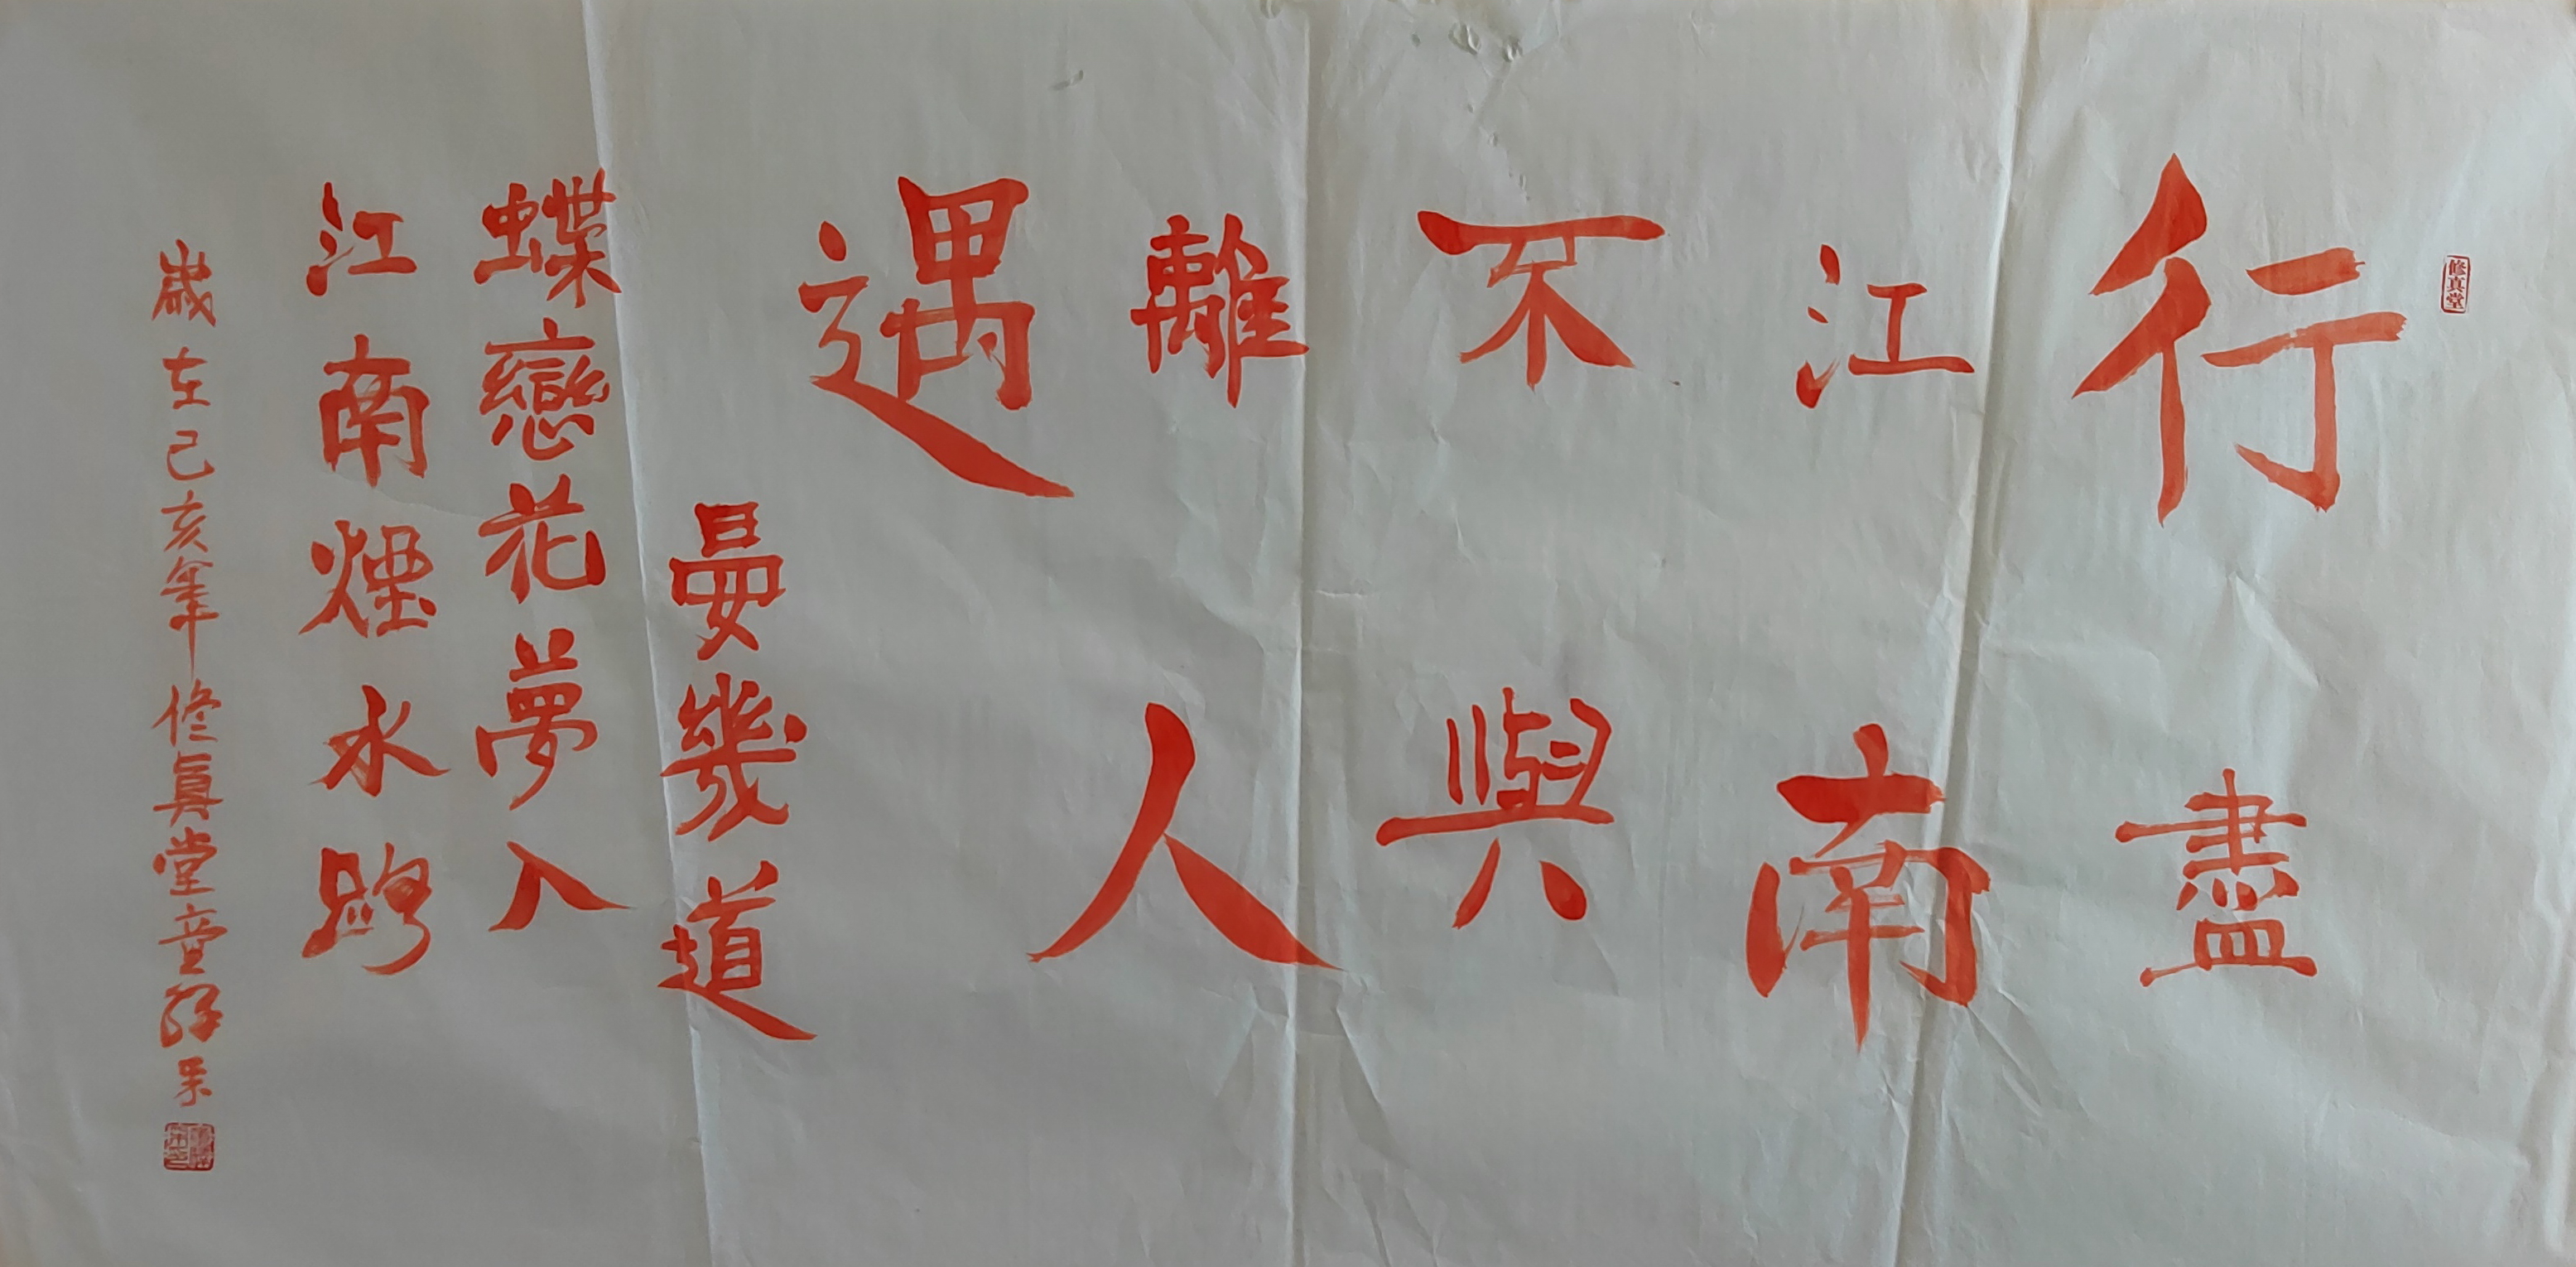 修真堂
行盡
江南
不與
離人
遇
晏幾道
蝶戀花夢入
江南煙水路
歲在己亥年修真堂童